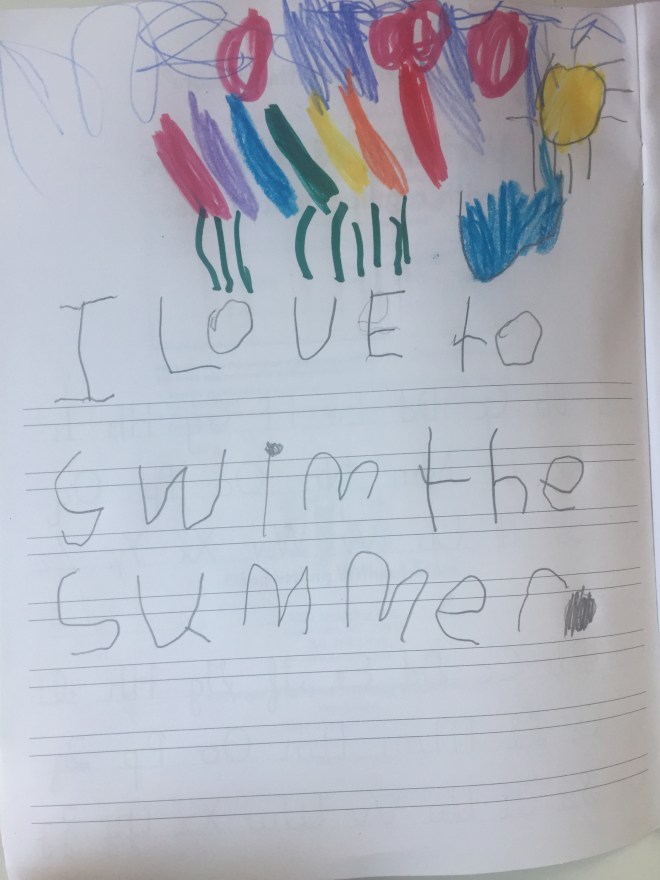 I LOVE to
swim the
summer.